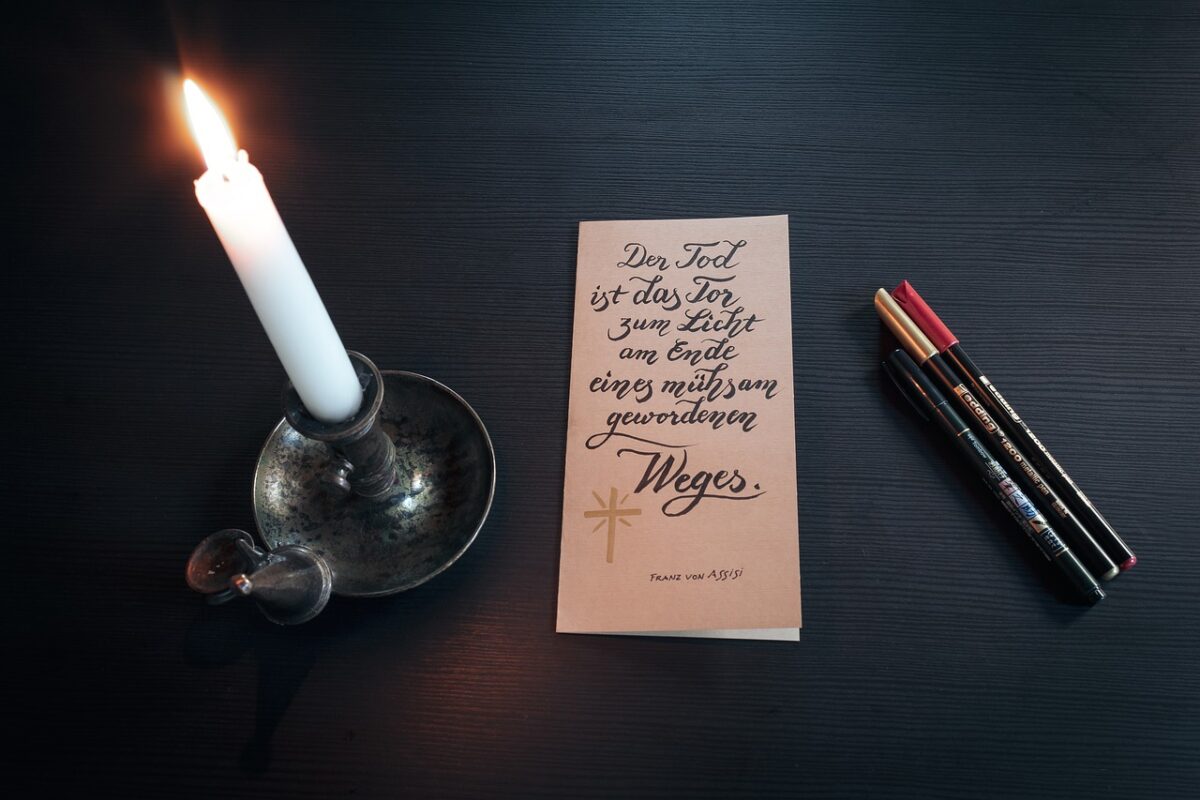 Der Tod
ist das Tor
zum Licht
am Ende
eines mühsam
gewordenen
Weges.
FRANZ VON ASSISI
edding
edding 1200